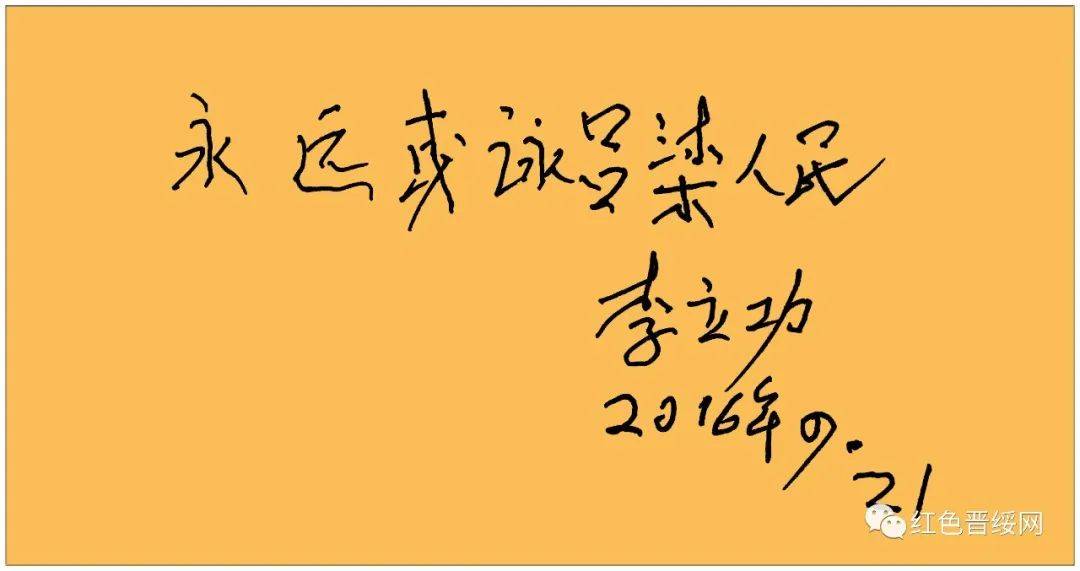 永远 詠吕梁人民
李立功
2016年9.21
红色晋绥网